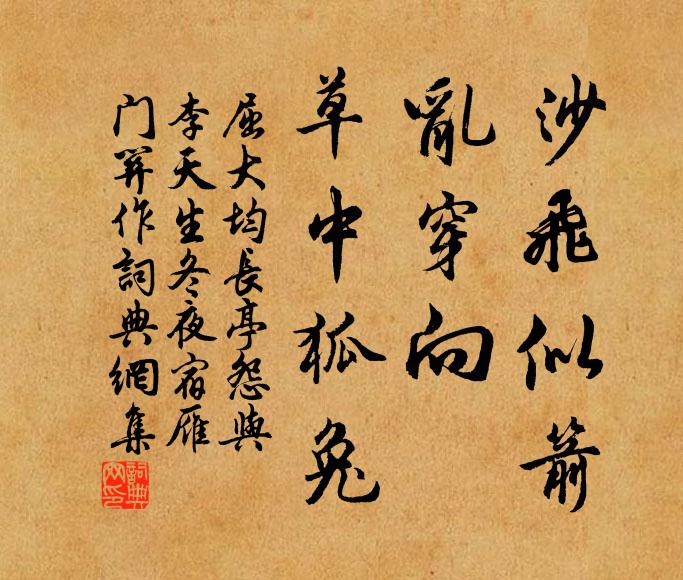 沙飛似箭
亂穿向
草中狐兔
屈大均長亭怨與
李天生冬夜宿雁
门關作詞典網集
詞典
网印